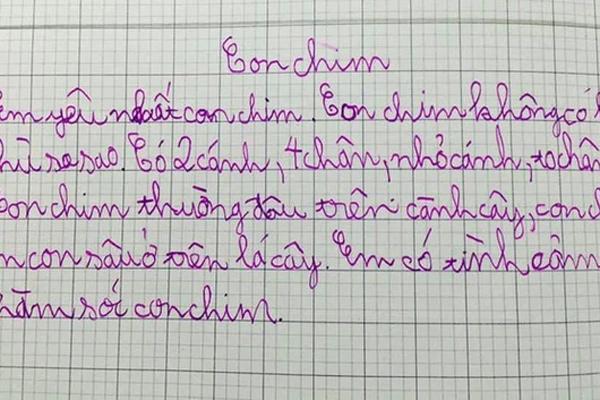 Con chim
em yêu nhất con chim. Con chim không có
sa sao. Có 2 cánh, 4 chân, nhỏ cánh, to chân
con chim thường đâu trên cành cây, con
con sâu ở trên lá cây. Em có tình cảm
sóc con chim.